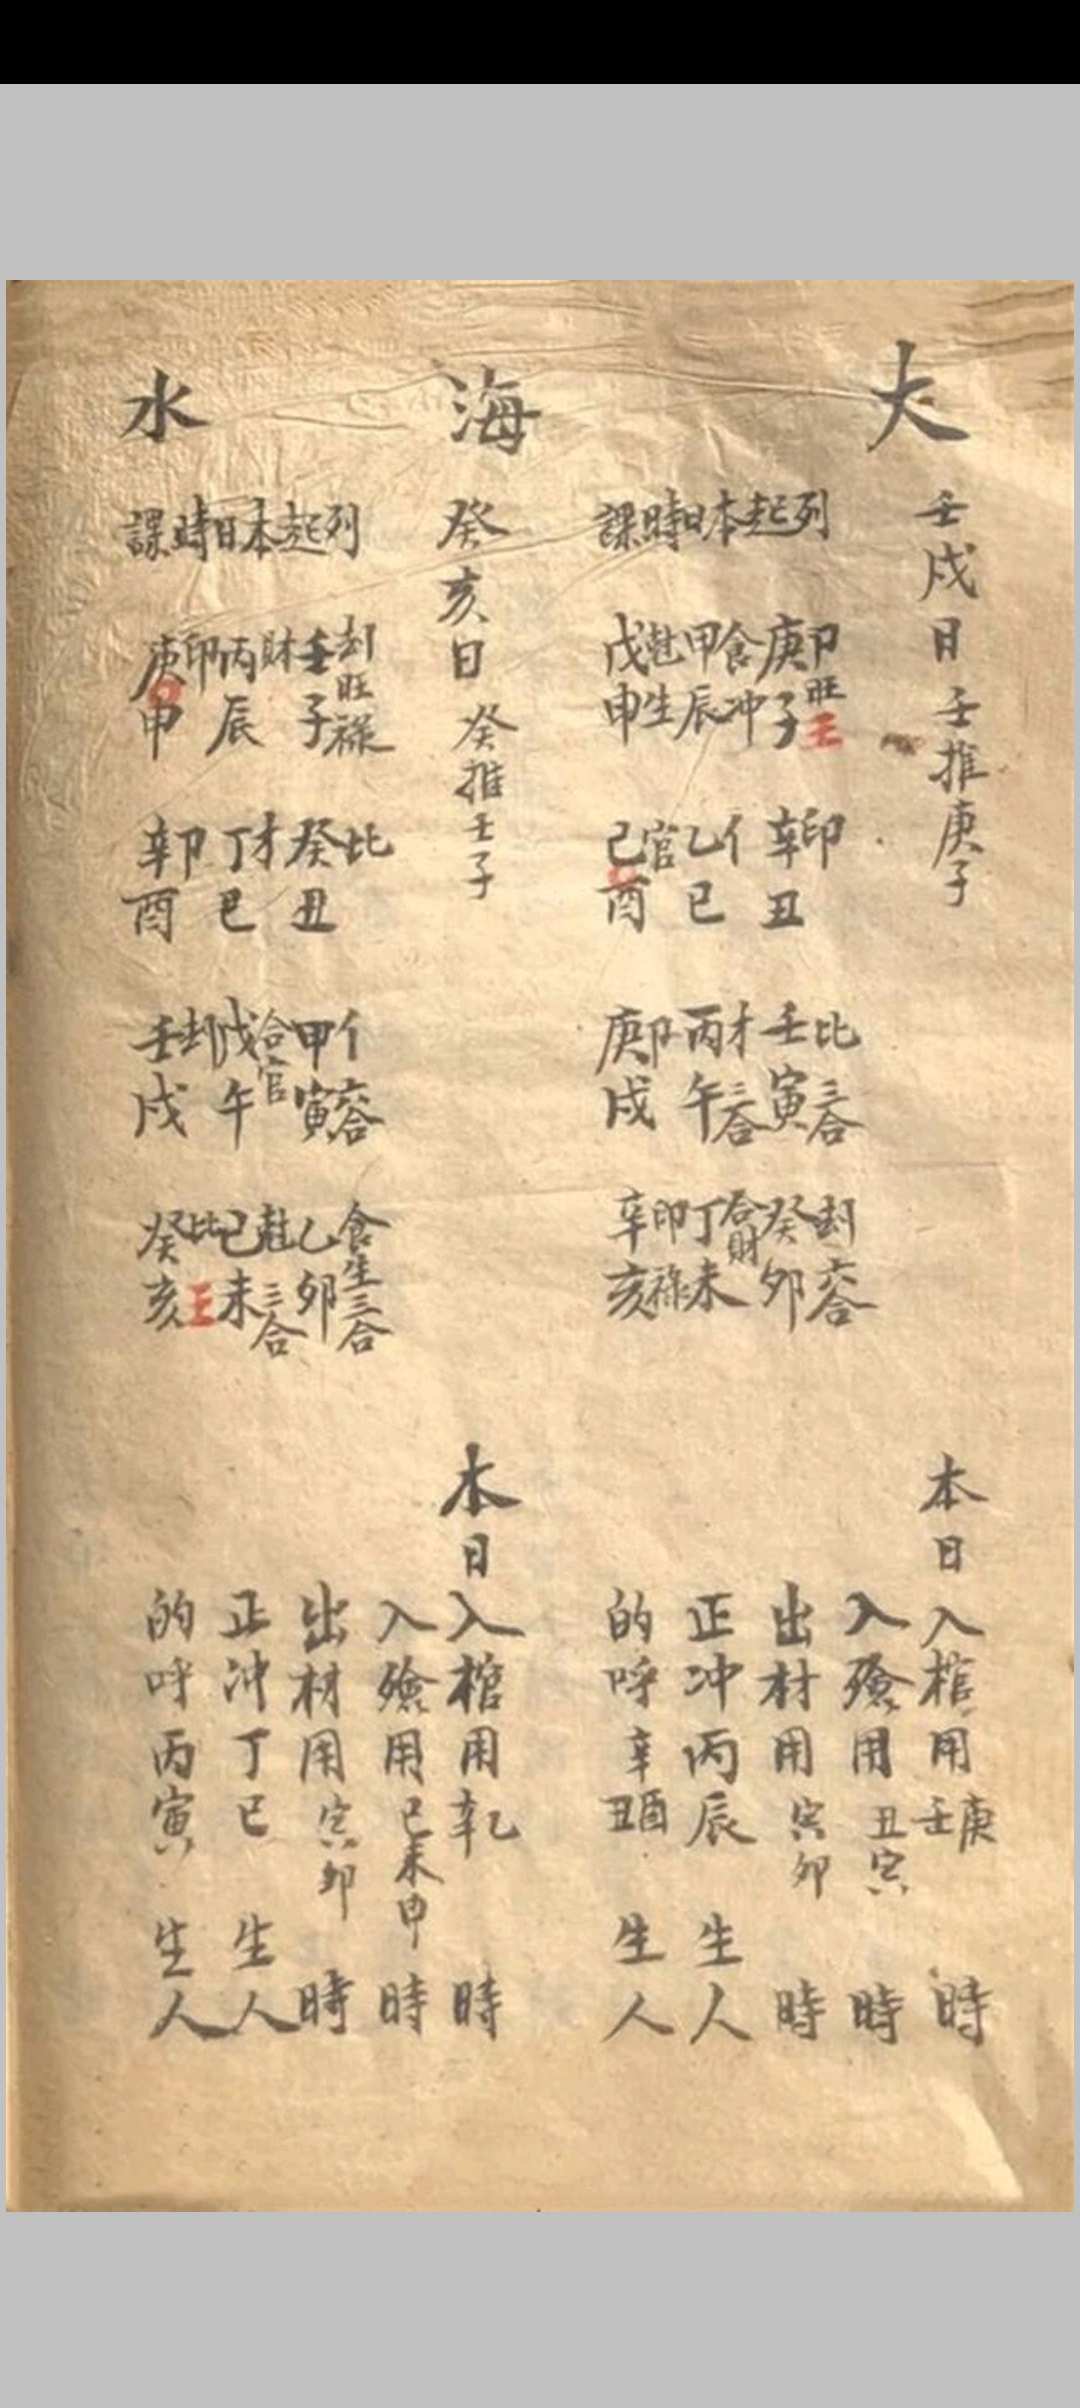 大海水
壬戌日壬推庚子
列起本日時課
庚子 印旺王
辛丑 印
壬寅 比三合
癸卯 刦六合
甲辰 食冲
乙巳 亻
丙午 才三合
丁未 合財
戊申 魁生
己酉 官
庚戌 卩
辛亥 印祿
本日入棺用壬庚時
入殮用丑寅時
出材用寅卯時
正冲丙辰生人
的呼辛丑酉生人
癸亥日癸推壬子
列起本日時課
壬子 刦旺祿
癸丑 比
甲寅 亻六合
乙卯 食生三合
丙辰 財
丁巳 才
戊午 合官
己未 魁三合
庚申 印
辛酉 卩
壬戌 刦
癸亥 比王
本日入棺用辛乙時
入殮用巳未申時
出材用寅卯時
正冲丁巳生人
的呼丙寅生人